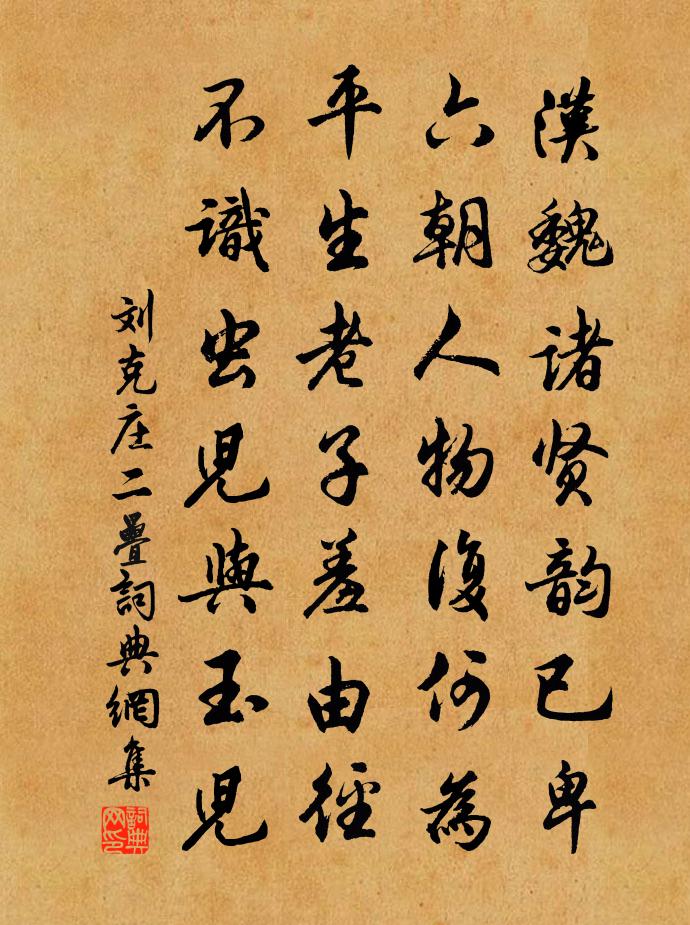 漢魏诸贤韵已卑
六朝人物復何為
平生老子羞由徑
不識虫児與玉児
刘克庄二疊詞典網集
詞典网印